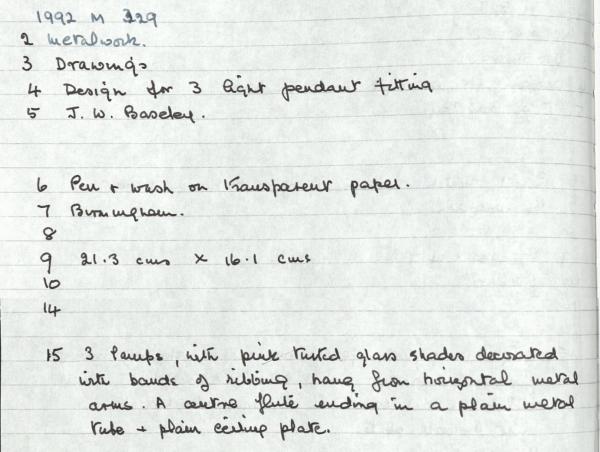 1992 M 329
2 Metalwork.
3 Drawings
4 Design for 3 light pendant fitting
5 J. W. Baseley.
6 Pen + wash on transparent paper.
7 Birmingham.
8
9 21.3 cms × 16.1 cms
10
14
15 3 lamps, with pink tinted glass shades decorated
with bands of ribbing, hang from horizontal metal
arms. A centre flute ending in a plain metal
tube + plain ceiling plate.